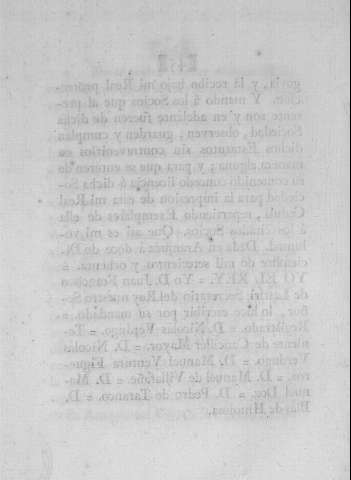 govia, y la recibo bajo mi Real protec-
cion. Y mando á los Socios que al pre-
sente son y en adelante fueren de dicha
Sociedad, observen, guarden y cumplan
dichos Estatutos sin contravenirlos en
manera alguna; y para que se enteren de
su contenido concedo licencia á dicha So-
ciedad para la impresion de esta mi Real
Cedula, repartiendo Exemplares de ella
á los citados Socios. Que asi es mi vo-
luntad. Dada en Aranjuez á doce de Di-
ciembre de mil setecientos y ochenta. =
YO EL REY. = Yo D. Juan Francisco
de Lastiri Secretario del Rey nuestro Se-
ñor, lo hice escribir por su mandado. =
Registrado. = D. Nicolás Verdugo. = Te-
niente de Canciller Mayor. = D. Nicolás
Verdugo. = D. Manuel Ventura Figue-
roa. = D. Manuel de Villafañe. = D. Ma-
nuel Doz. = D. Pedro de Taranco. = D.
Blas de Hinojosa.